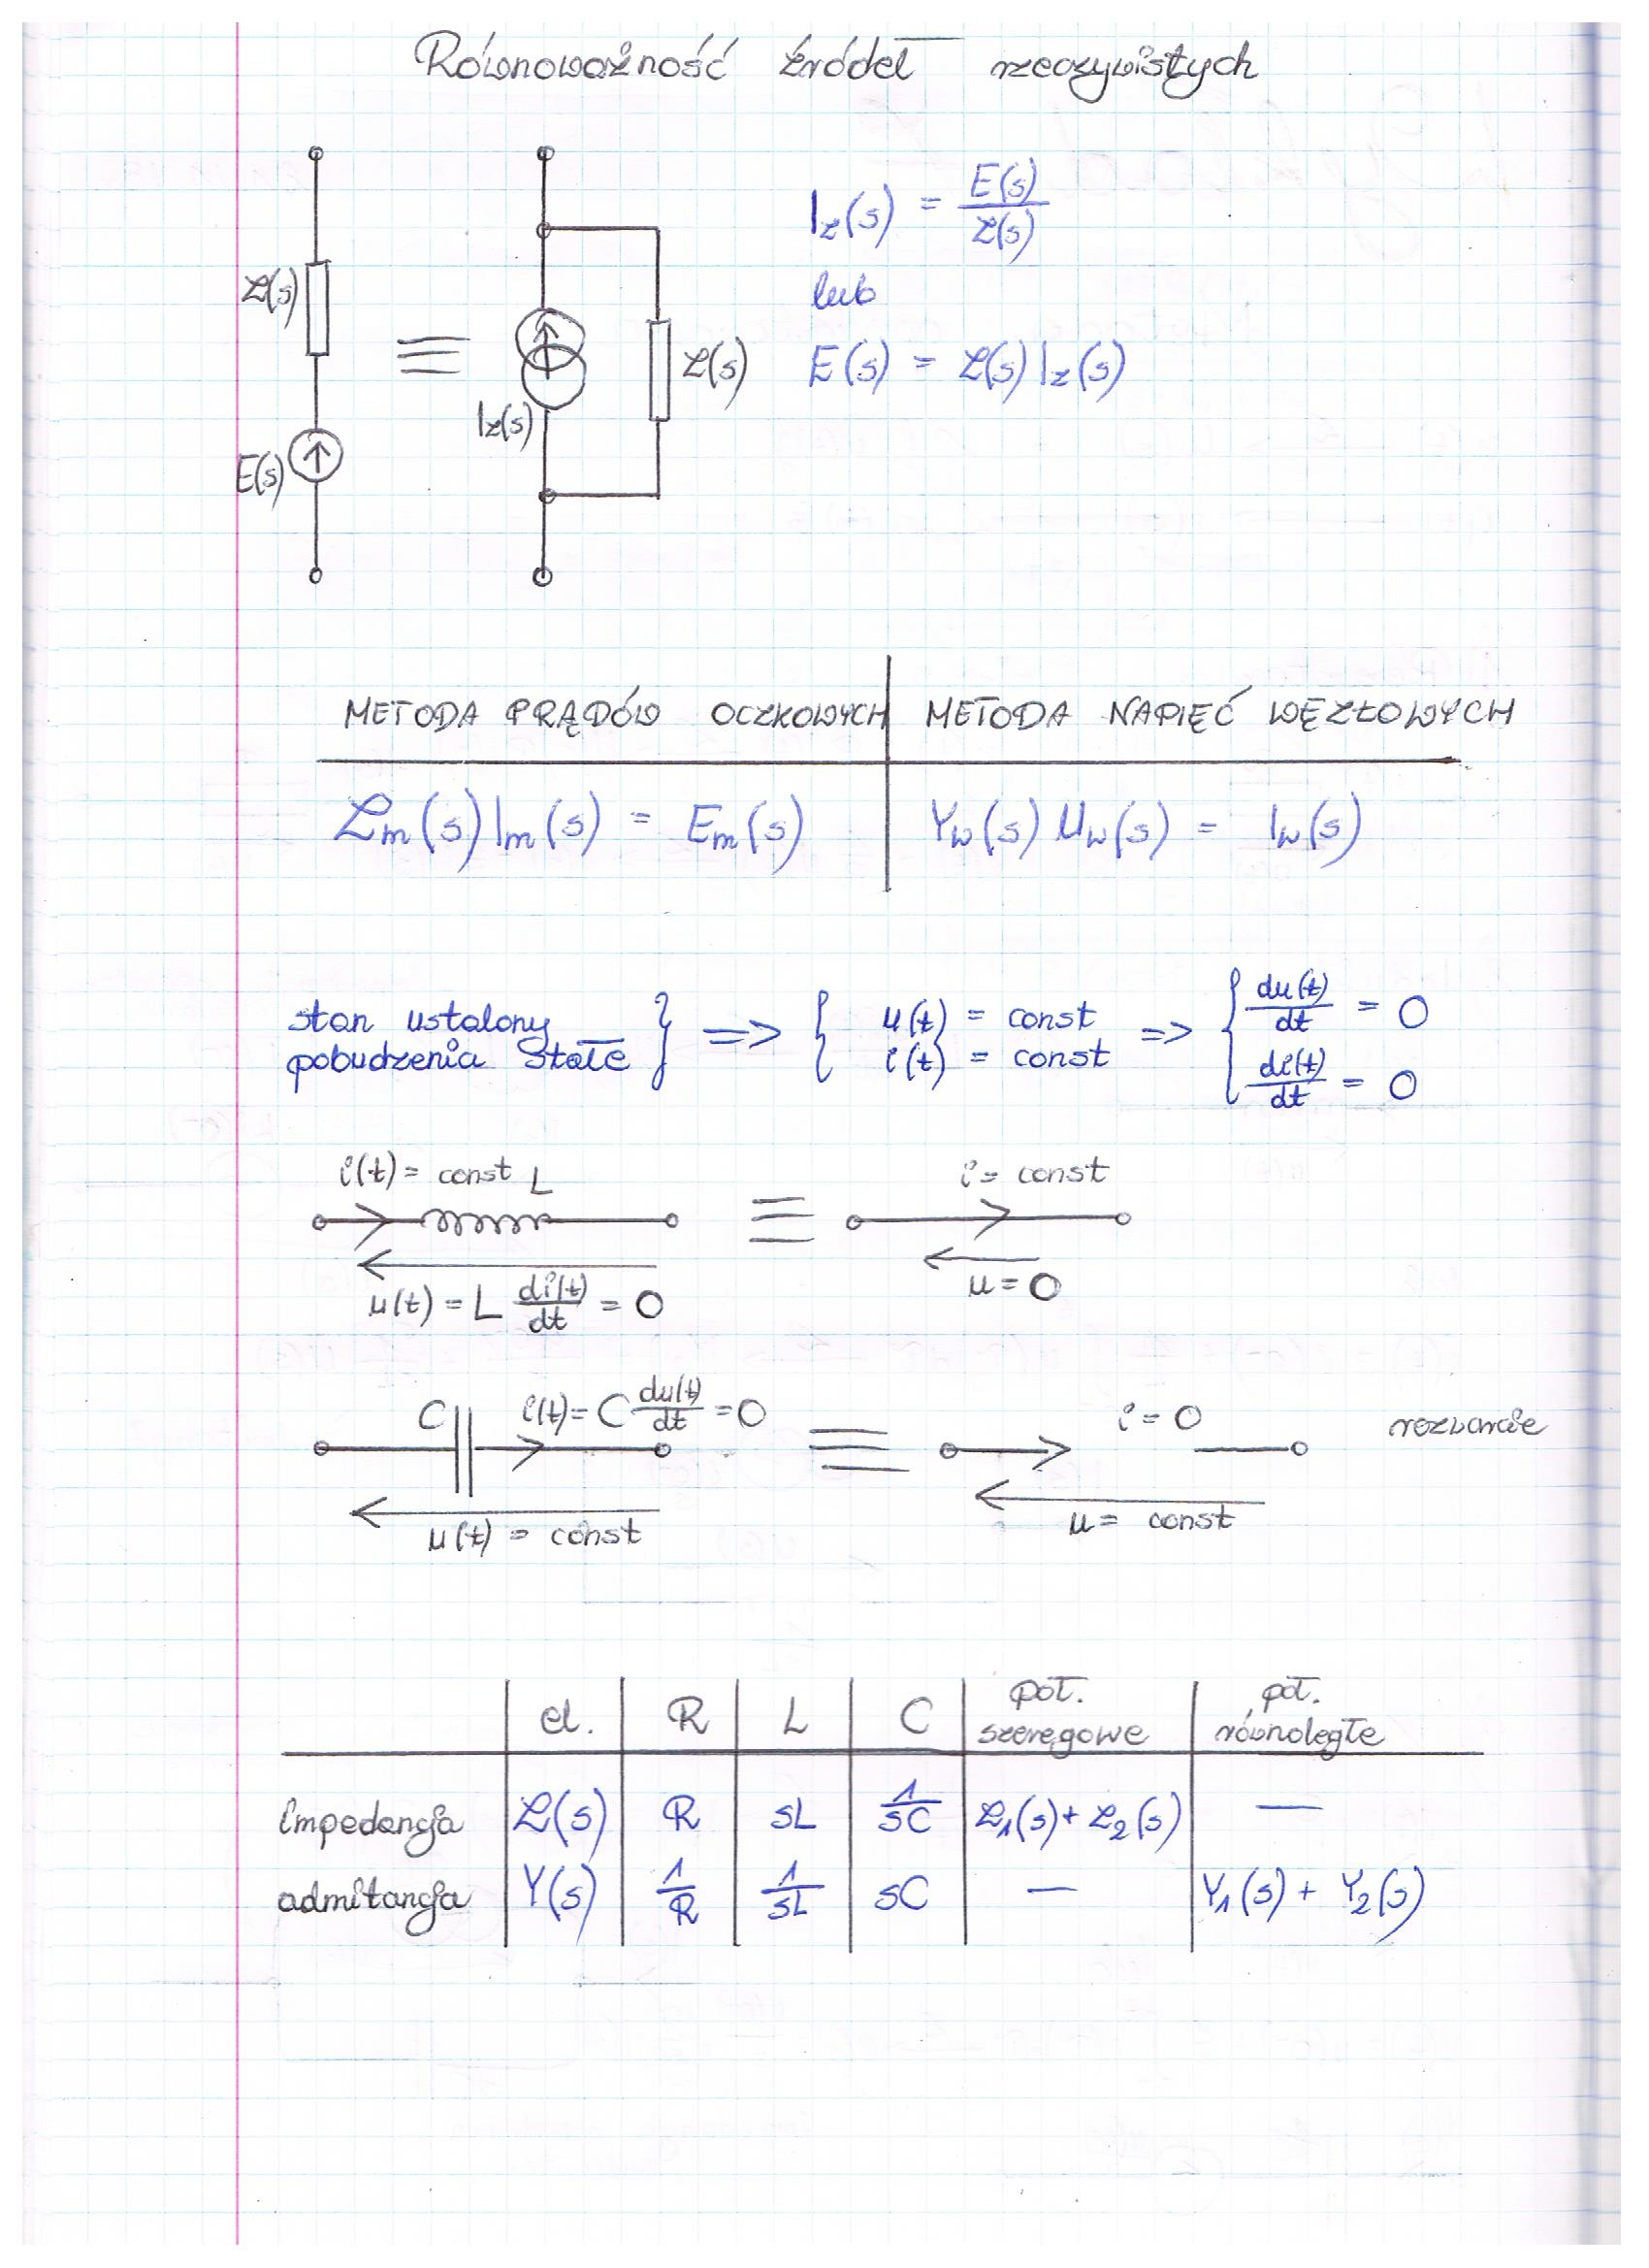 Równoważność źródeł rzeczywistych
Z(s)
E(s)
≡
I_z(s)
Z(s)
I_z(s) = E(s)/Z(s)
lub
E(s) = Z(s) I_z(s)
METODA PRĄDÓW OCZKOWYCH | METODA NAPIĘĆ WĘZŁOWYCH
Z_m(s) I_m(s) = E_m(s) | Y_w(s) U_w(s) = I_w(s)
stan ustalony } => { u(t) = const => { du(t)/dt = 0
pobudzenia stałe } { i(t) = const { di(t)/dt = 0
i(t) = const L ≡ i = const
u(t) = L di(t)/dt = 0 u = 0
C i(t) = C du(t)/dt = 0 ≡ i = 0 rozwarcie
u(t) = const u = const
el. | R | L | C | poł. szeregowe | poł. równoległe
impedancja | Z(s) | R | sL | 1/sC | Z₁(s) + Z₂(s) | —
admitancja | Y(s) | 1/R | 1/sL | sC | — | Y₁(s) + Y₂(s)